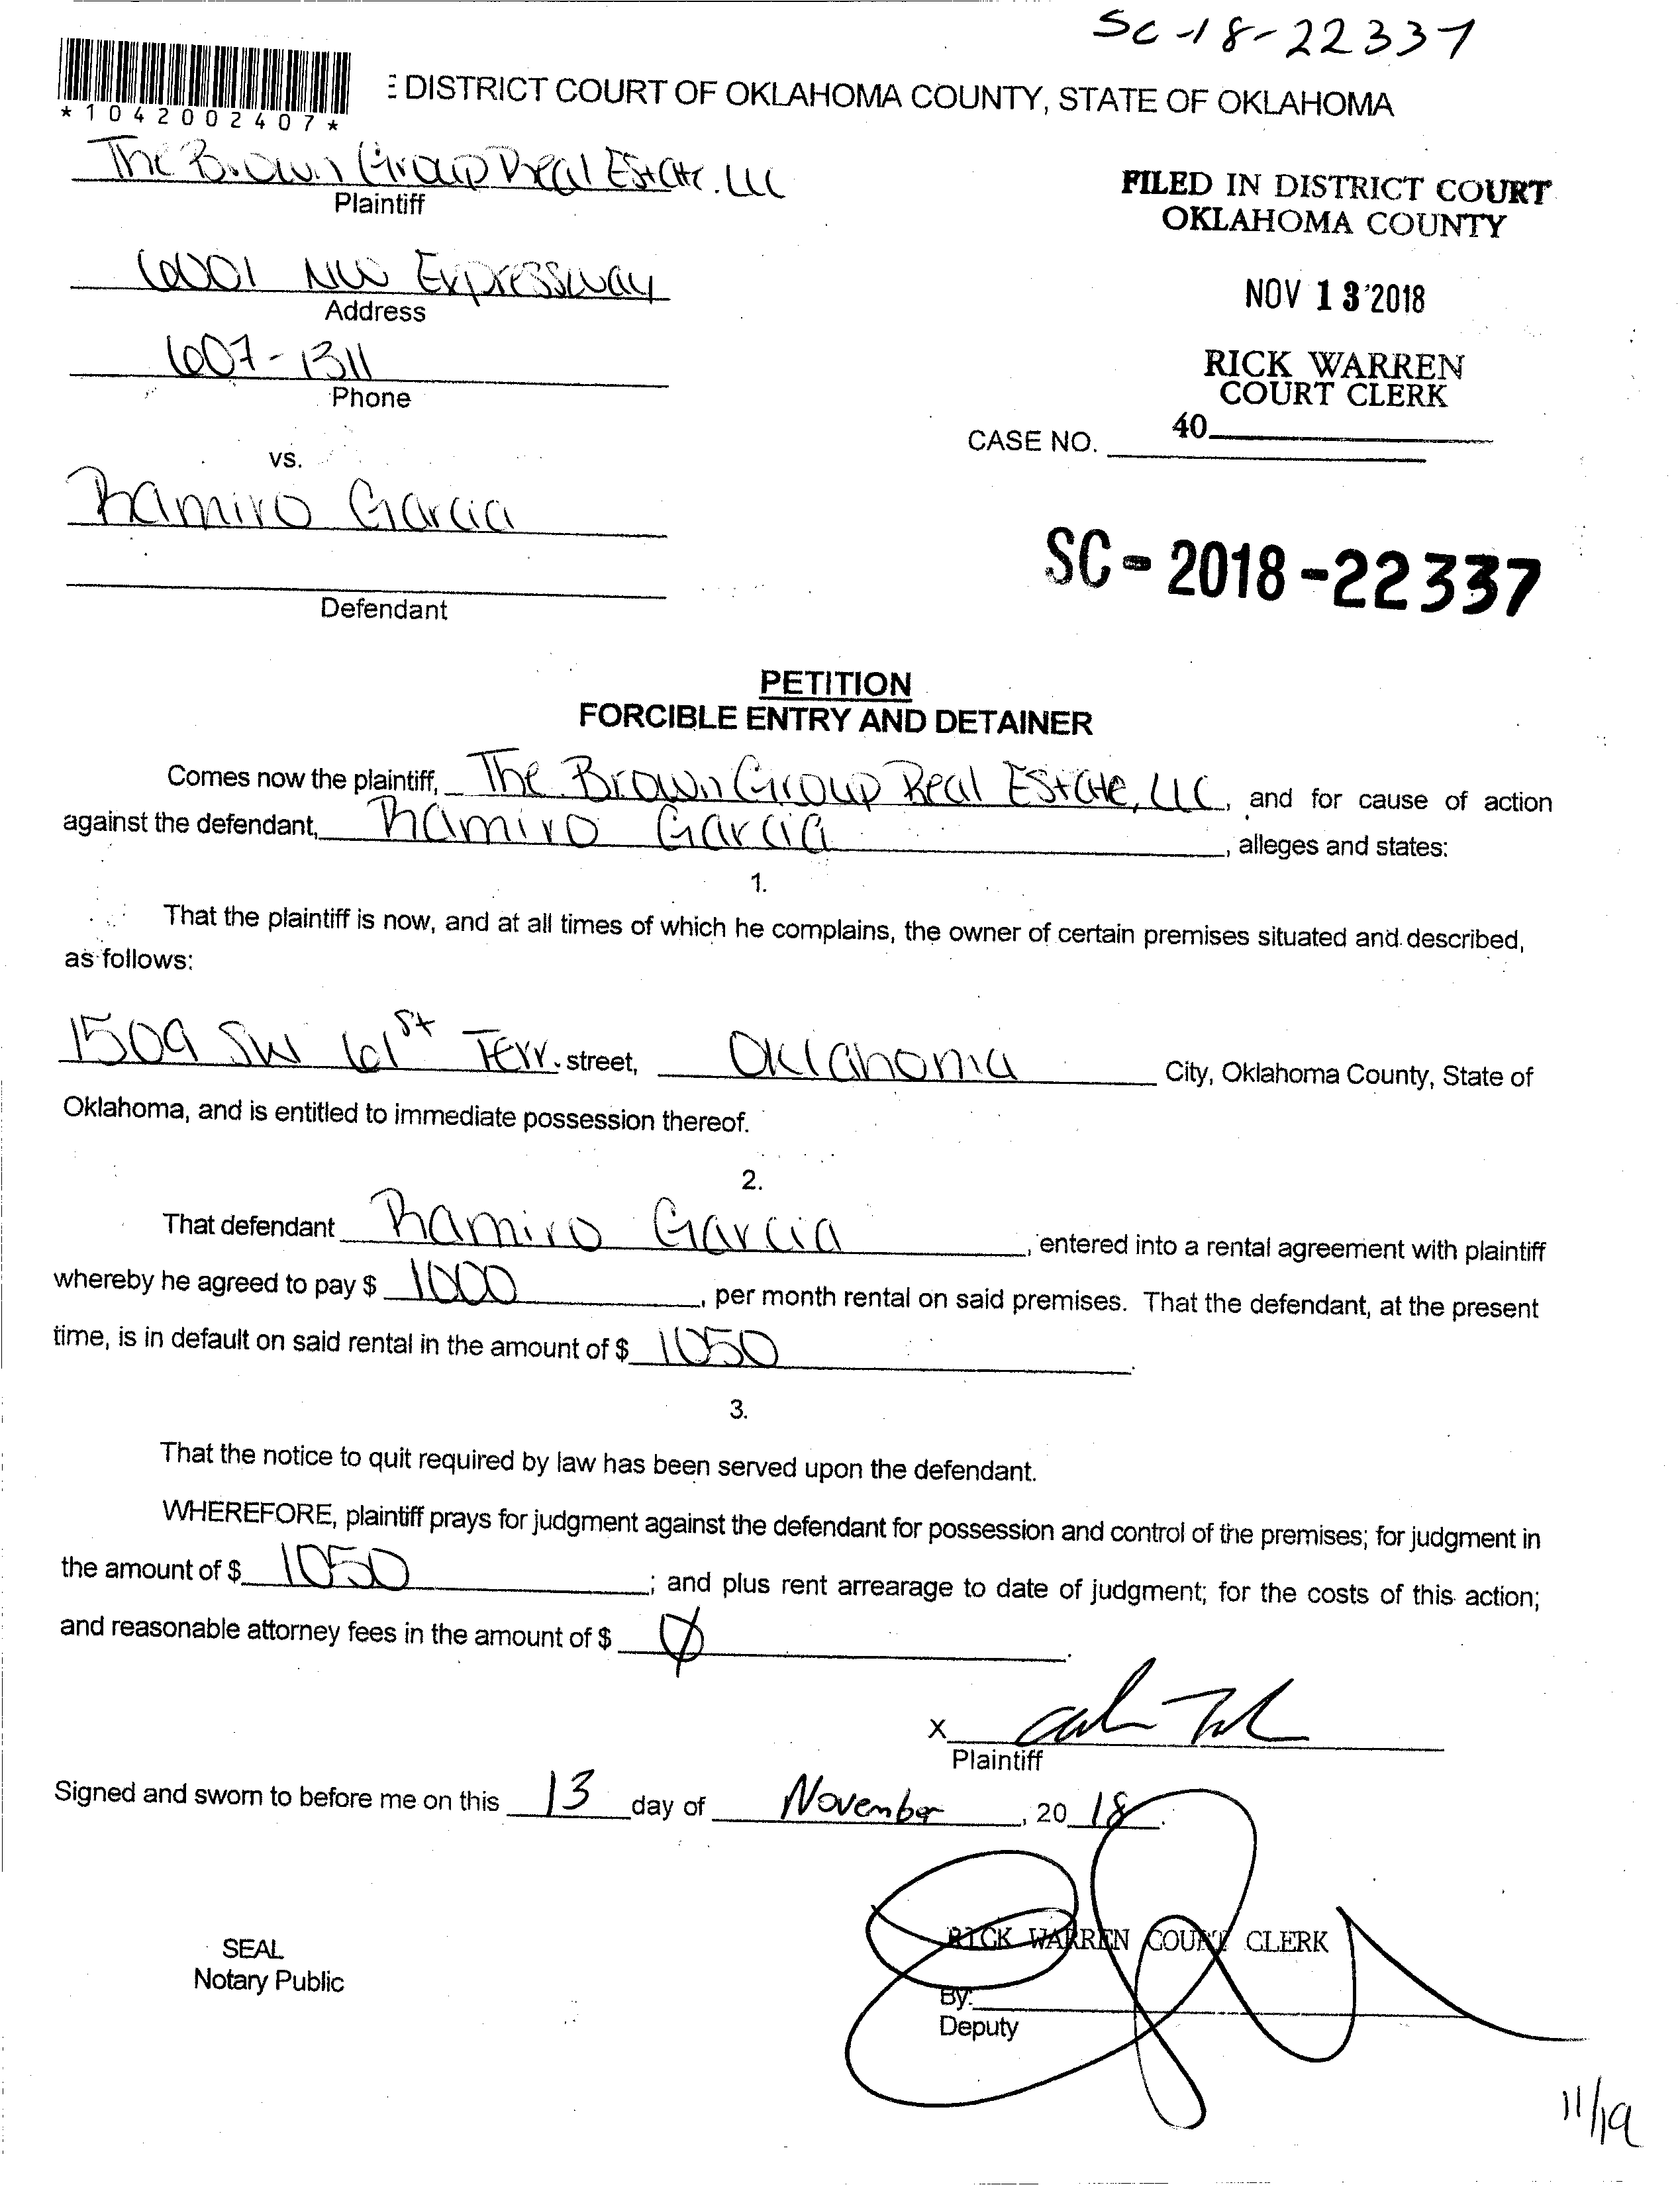 SC-18-22337
*1042002407*
E DISTRICT COURT OF OKLAHOMA COUNTY, STATE OF OKLAHOMA
The Brown Group Real Estate, LLC
Plaintiff
FILED IN DISTRICT COURT
OKLAHOMA COUNTY
6001 NW Expressway
Address
NOV 13 2018
607-1311
Phone
RICK WARREN
COURT CLERK
40
CASE NO.
vs.
Ramiro Garcia
SC-2018-22337
Defendant
PETITION
FORCIBLE ENTRY AND DETAINER
Comes now the plaintiff, The Brown Group Real Estate, LLC, and for cause of action
against the defendant, Ramiro Garcia, alleges and states:
1.
That the plaintiff is now, and at all times of which he complains, the owner of certain premises situated and described,
as follows:
1509 SW 61st Terr. street, Oklahoma City, Oklahoma County, State of
Oklahoma, and is entitled to immediate possession thereof.
2.
That defendant Ramiro Garcia, entered into a rental agreement with plaintiff
whereby he agreed to pay $ 1000, per month rental on said premises. That the defendant, at the present
time, is in default on said rental in the amount of $ 1050.
3.
That the notice to quit required by law has been served upon the defendant.
WHEREFORE, plaintiff prays for judgment against the defendant for possession and control of the premises; for judgment in
the amount of $ 1050; and plus rent arrearage to date of judgment; for the costs of this action;
and reasonable attorney fees in the amount of $ Ø.
X
Plaintiff
Signed and sworn to before me on this 13 day of November, 20 18.
RICK WARREN COURT CLERK
SEAL
Notary Public
By:
Deputy
11/19